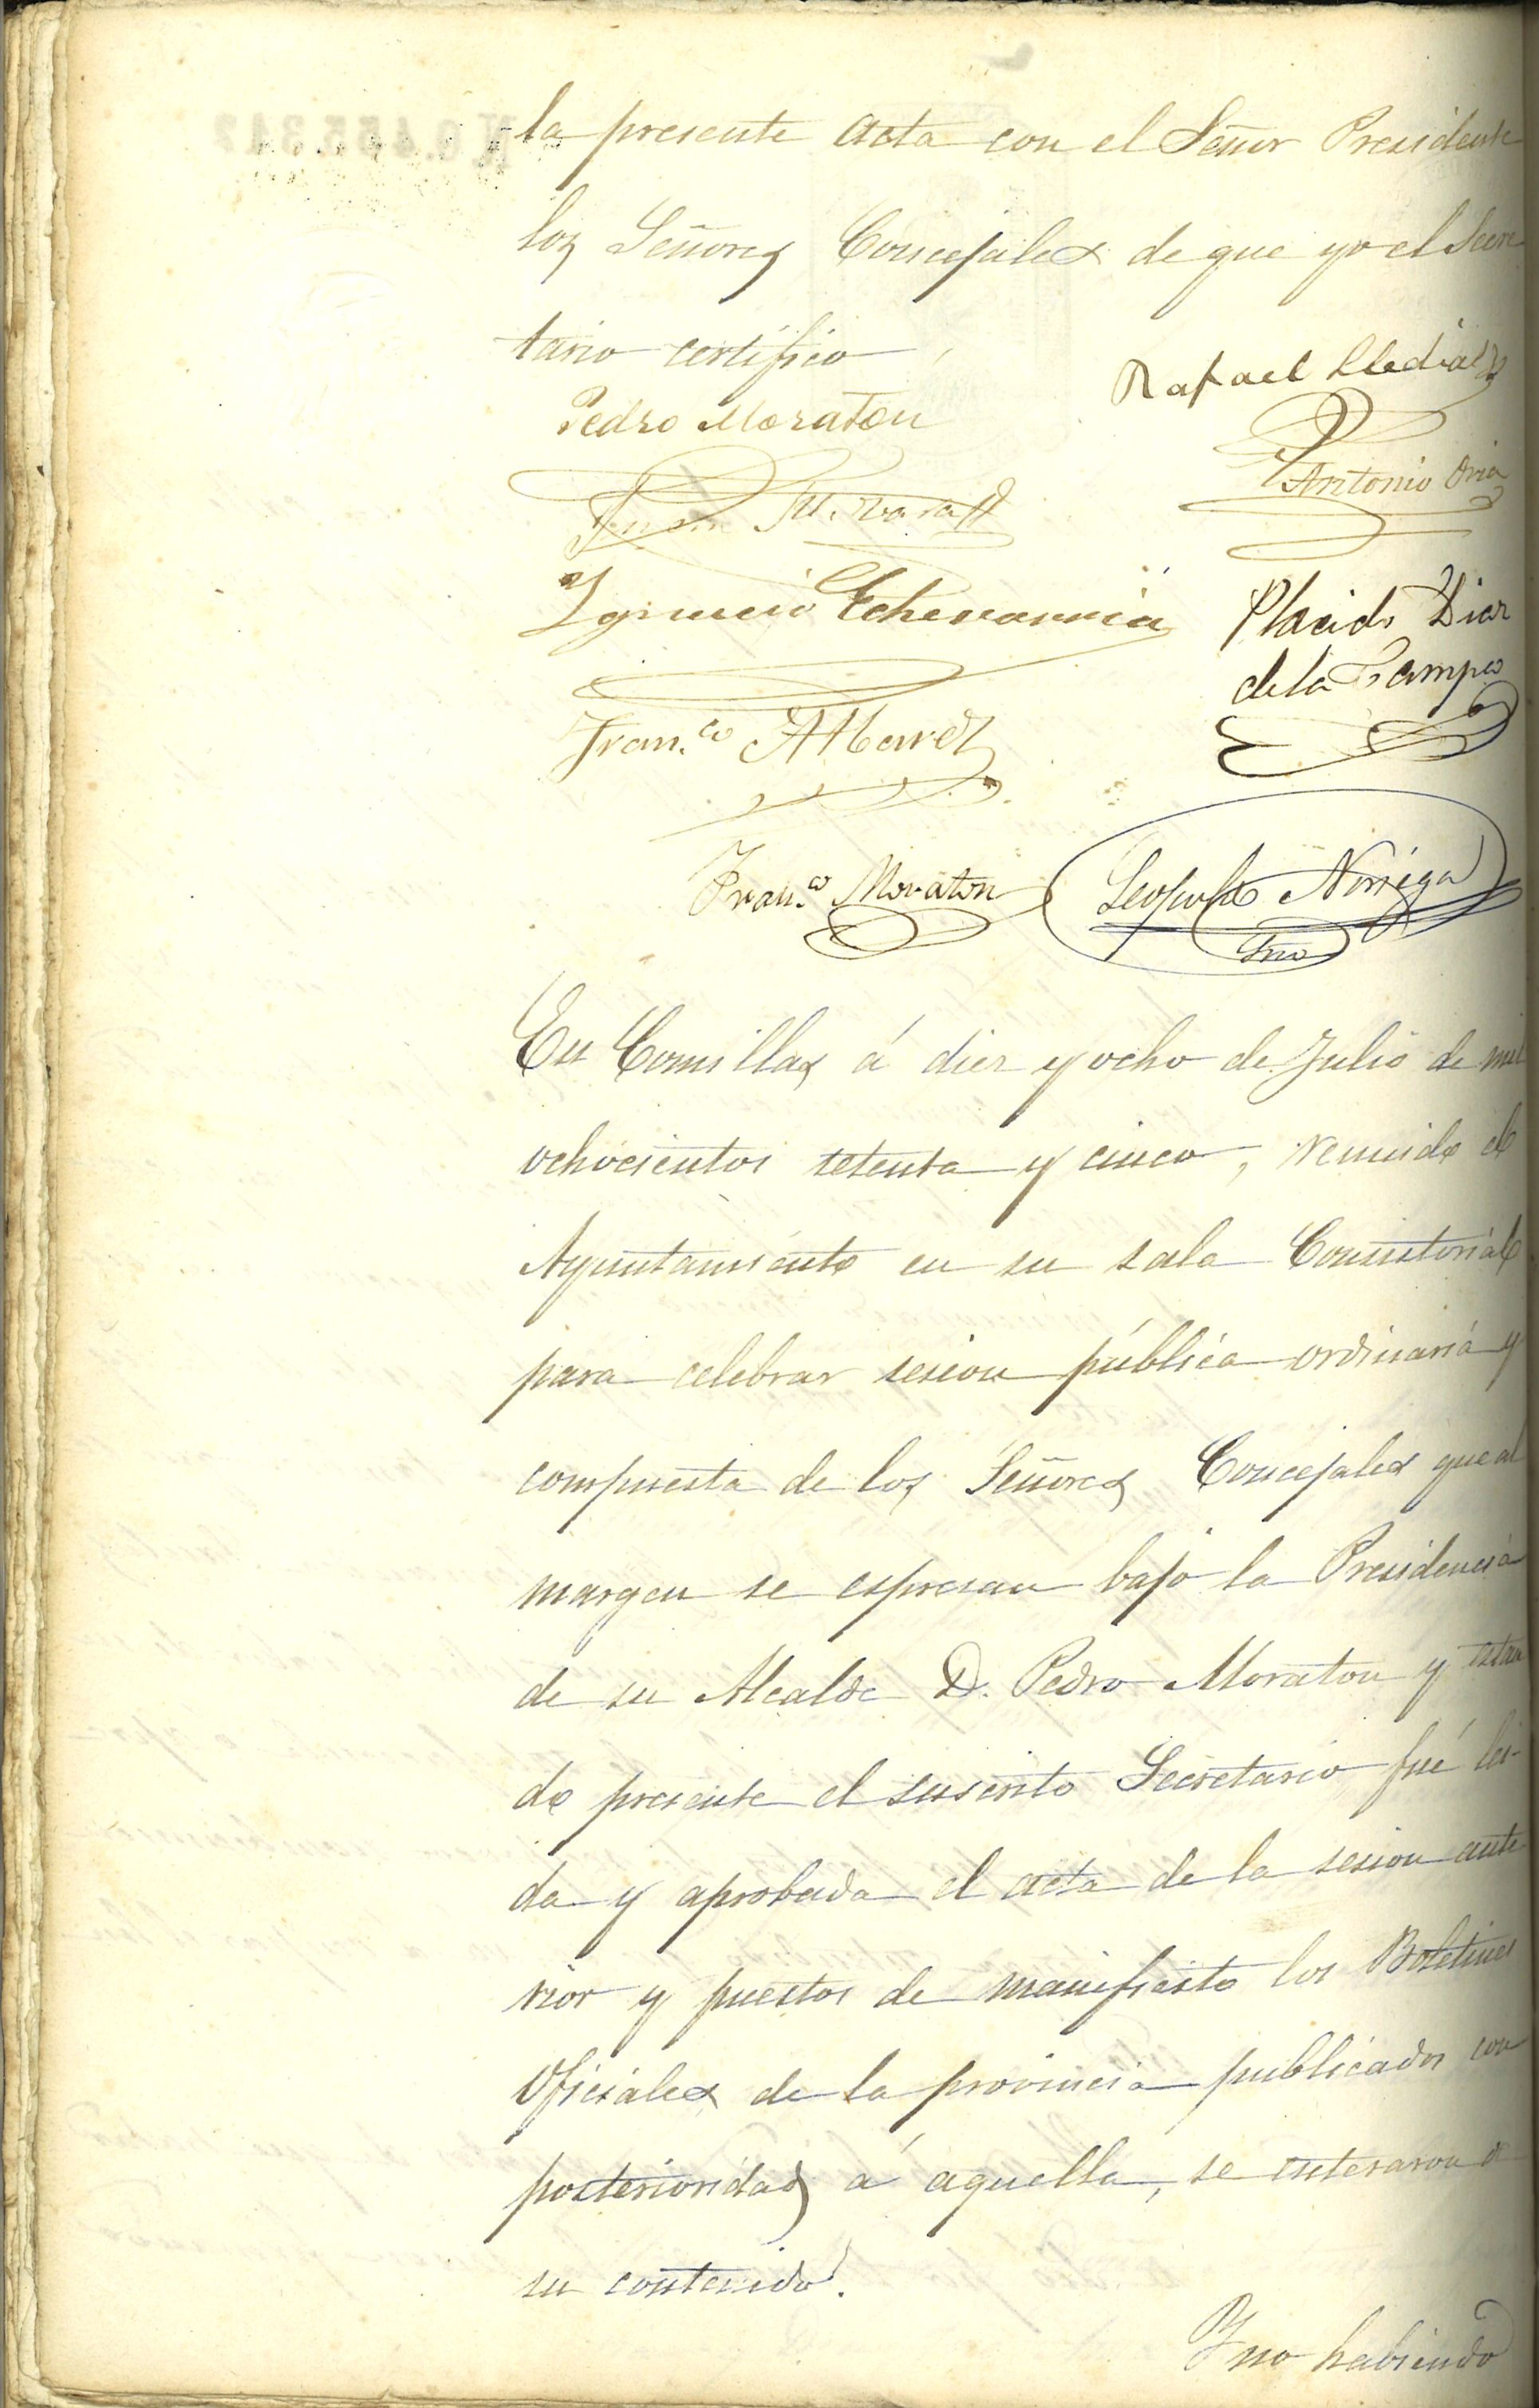 la presente acta con el Señor Presidente
los Señores Concejales de que yo el Secre
tario certifico
Rafael
Pedro Moraton
Antonio Oria
Juan
Ygnacio Echevarria
Placido Diaz
de la Campa
Fran.co
Fran.co Moraton
Leopoldo Noriega
Srio
En Comillas á diez y ocho de Julio de mil
ochocientos setenta y cinco, reunido el
Ayuntamiento en su sala Consistorial
para celebrar sesion pública ordinaria y
compuesta de los Señores Concejales que al
margen se espresan bajo la Presidencia
de su Alcalde D. Pedro Moraton y estan
do presente el suscrito Secretario fué lei-
da y aprobada el acta de la sesion ante
rior y puestos de manifiesto los Boletines
Oficiales de la provincia publicados con
posterioridad á aquella, se enteraron de
su contenido.
Y no habiendo